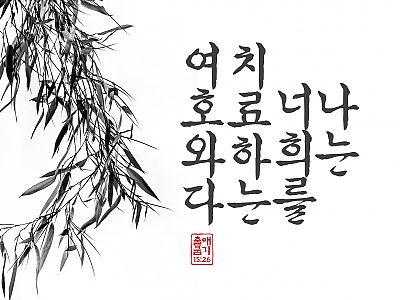 나는
너희를
치료하는
여호와다
출애
굽기
15:26